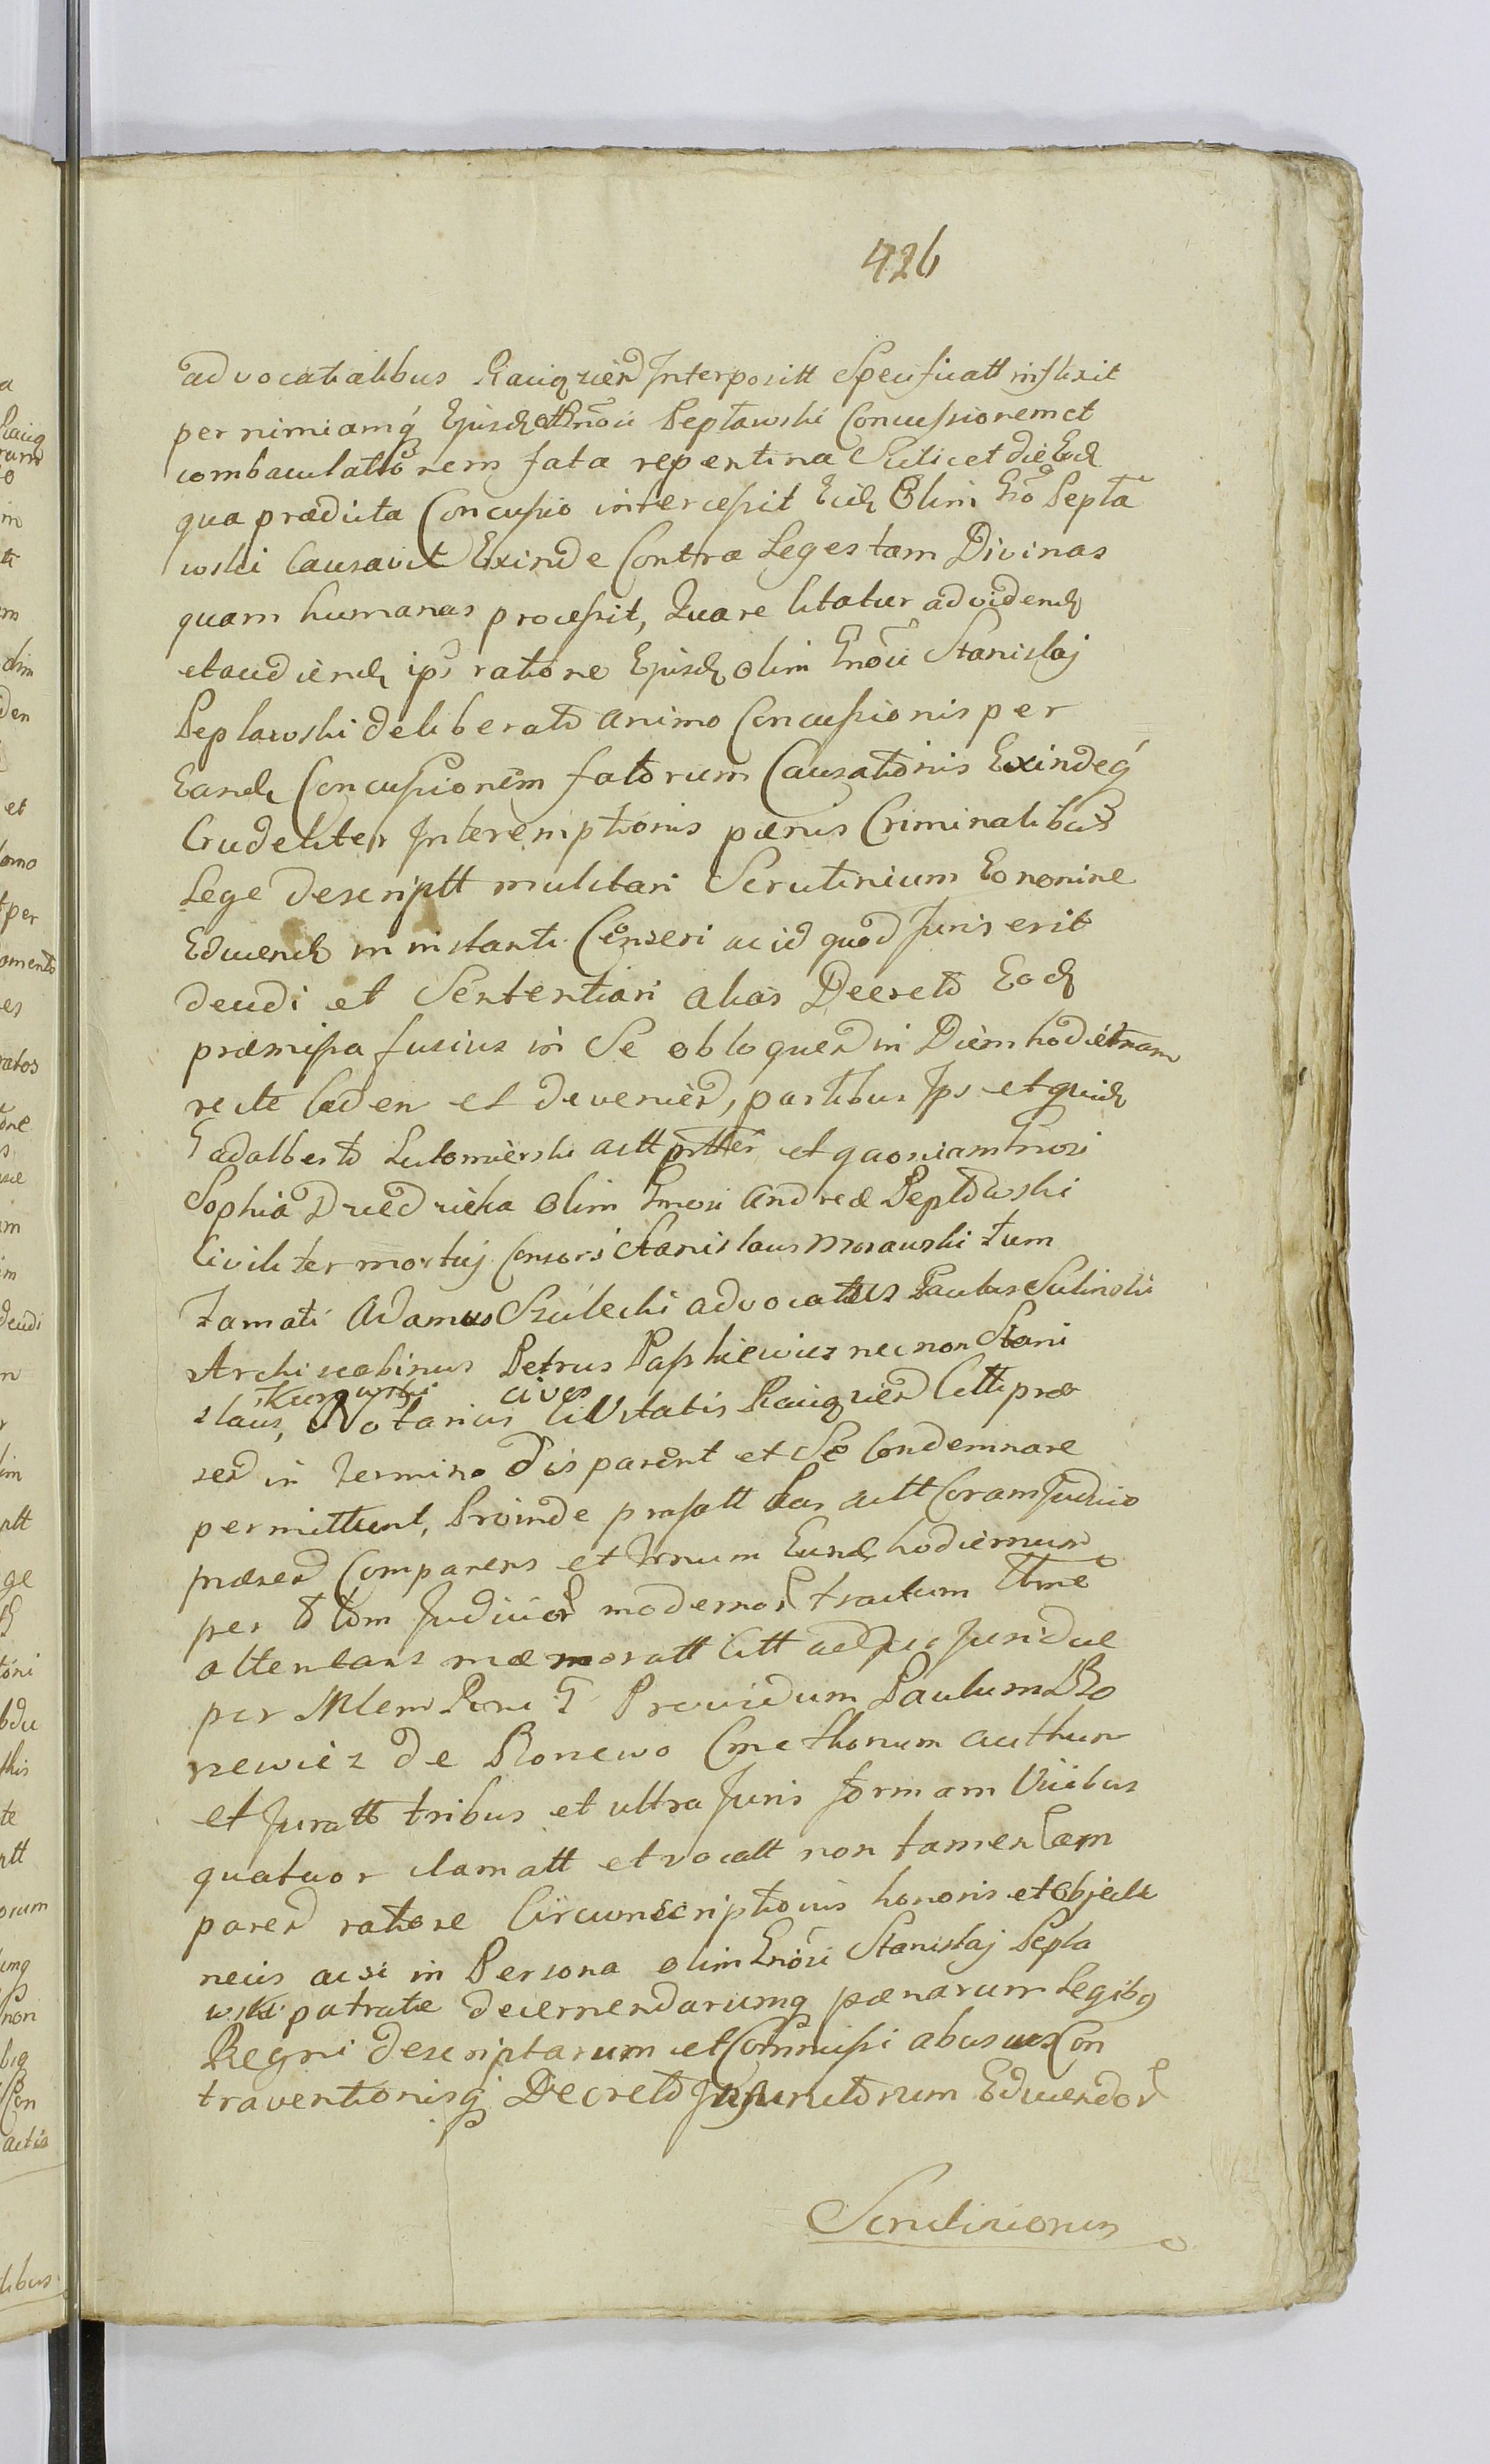 426
advocatialibus Raiigrien Interpositt Specificatt inflixit
per nimiamq Ejusd Gnosi Peplawski Concussionem et
combaculationem fata repentina Scilicet die Ead
qua prædicta Concussio intercessit Eid Olim Gno Pepla
wski Causavit Exinde Contra Leges tam Divinas
quam humanas processit, Quare Citatur ad vidend
et audiend ips ratione Ejusd olim Gnosi Stanislaj
Peplawski deliberato animo Concussionis per
Eand Concussionem fatorum Causationis Exindeq
Crudeliter Interemptionis pænis Criminalibus
Lege descriptt mulctari Scrutinium Eo nomine
Educend in instanti Censeri ac id quod Juris erit
decidi et Sententiari alias Decreto Eod
præmissa fusius in Se obloquen in Diem hodiernam
recte Caden et devenien, partibus Ips et quid
G adalberto Lutomierski actt et quoniam Gnosi
Sophia Dredzicka Olim Gnosi Andreæ Peplowski
Civiliter mortuj Consors Stanislaus Morawski tum
Famati Adamus Szulecki advocatus Paulus Sulinski
Archiscabinus Petrus Paszkiewicz nec non Stani
slaus, Notarius cives Civitatis Raiigrien Citti præ
sen in termino disparent et Se Condemnare
permittunt, Proinde præfatt Pars actt Coram Judicio
præsen Comparens et trnum Eund hodiernum
per Judicior modernor tractum
attentans mæmoratt Citt ad Juridice
per Mlem Reni G Providum Paulum Ro
newicz de Ronewo Cmethonum authen
et Juratt tribus et ultra Juris formam Vicibus
quatuor clamatt et vocatt non tamen Com
paren ratione Circumscriptionis honoris et Objecte
necis ac si in Persona olim Gnosi Stanislaj Pepla
wski patratæ decernendarumq pænarum Legibq
Regni descriptarum et Commissi abusus Con
traventionisq Decreto Educendor
Scrutiniorum